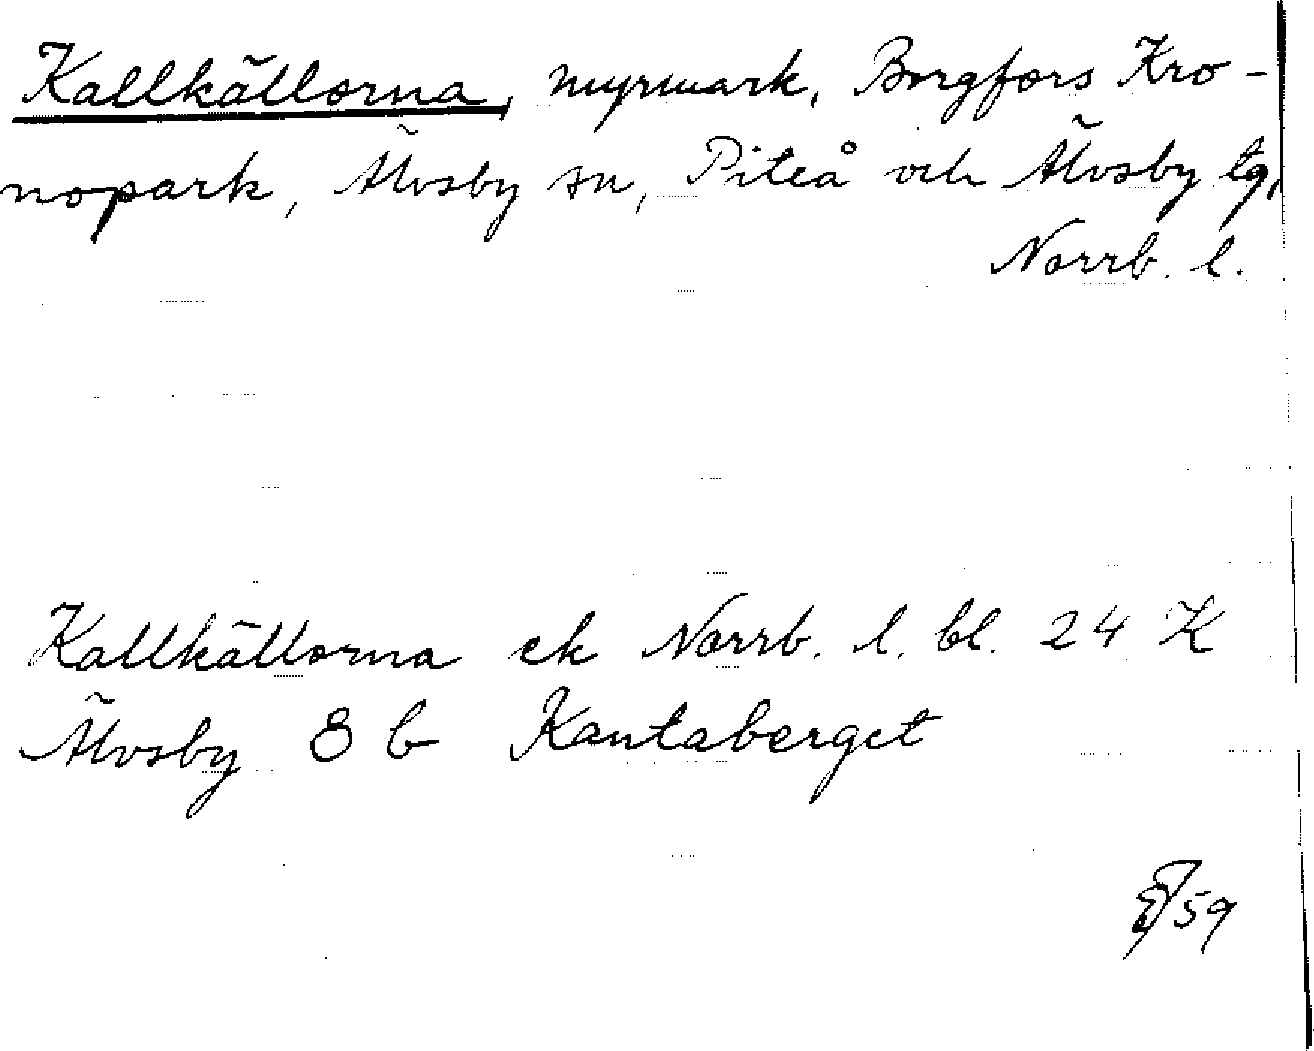 Kallkällorna, myrmark, Borgfors Kro-
nopark, Älvsby sn, Piteå och Älvsby tg,
Norrb. l.
Kallkällorna ek Norrb. l. bl. 24 K
Älvsby 8 b Kantaberget
59